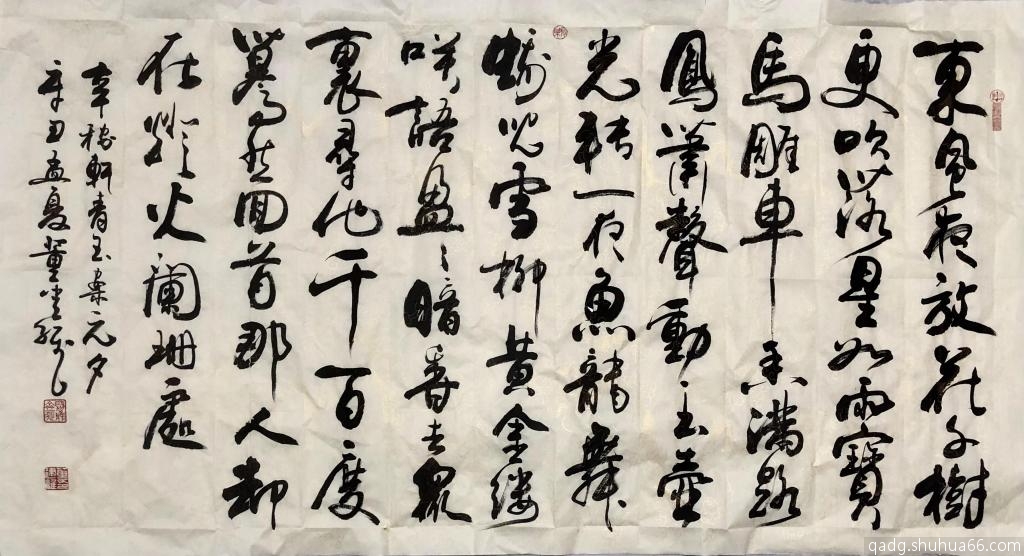 東風夜放花千樹
更吹落星如雨寶
馬雕車香滿路
鳳簫聲動玉壺
光轉一夜魚龍舞
蛾兒雪柳黃金縷
咲語盈〻暗香去衆
裏尋他千百度
驀然回首那人却
在燈火闌珊處
辛稼軒青玉案元夕
辛丑孟夏董
qadg.shuhua66.com